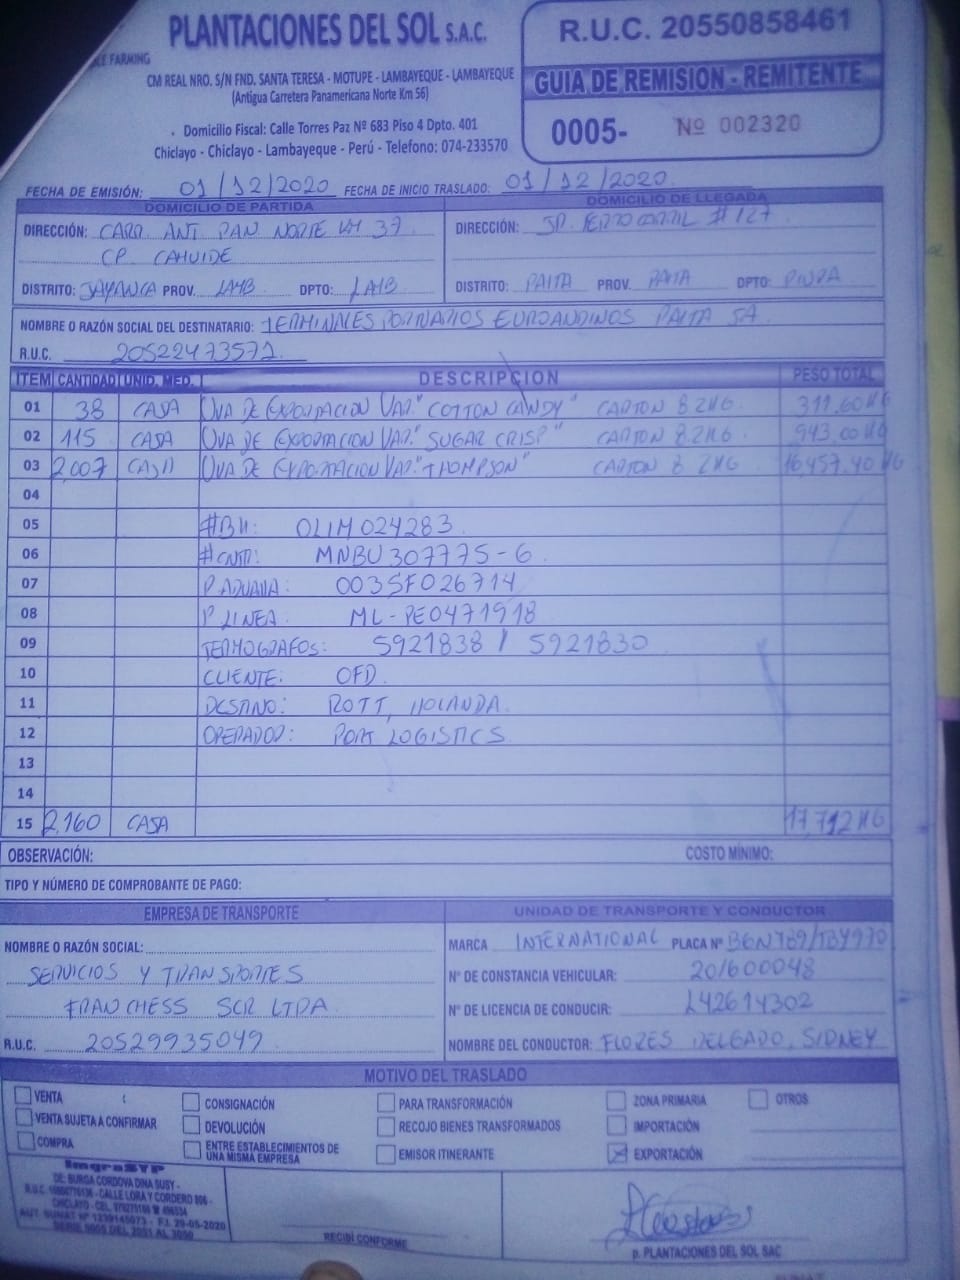 PLANTACIONES DEL SOL S.A.C.
FARMING
CM REAL NRO. S/N FND. SANTA TERESA - MOTUPE - LAMBAYEQUE - LAMBAYEQUE
(Antigua Carretera Panamericana Norte Km 56)
Domicilio Fiscal: Calle Torres Paz Nº 683 Piso 4 Dpto. 401
Chiclayo - Chiclayo - Lambayeque - Perú - Telefono: 074-233570
R.U.C. 20550858461
GUIA DE REMISION - REMITENTE
0005- Nº 002320
FECHA DE EMISIÓN: 01/12/2020 FECHA DE INICIO TRASLADO: 01/12/2020
DOMICILIO DE PARTIDA
DIRECCIÓN: CARR. ANT. PAN NORTE KM 37
CP. CAHUIDE
DISTRITO: JAYANCA PROV. LAMB DPTO: LAMB
DOMICILIO DE LLEGADA
DIRECCIÓN: #127
DISTRITO: PAITA PROV. PAITA DPTO: PIURA
NOMBRE O RAZÓN SOCIAL DEL DESTINATARIO: TERMINALES PORTUARIOS EUROANDINOS PAITA SA.
R.U.C. 20522473571
ITEM CANTIDAD UNID. MED. DESCRIPCION PESO TOTAL
01 38 CAJA UVA DE EXPORTACION VAR. "COTTON CANDY" CARTON 8.2KG. 311.60KG
02 115 CAJA UVA DE EXPORTACION VAR. "SUGAR CRISP" CARTON 8.2KG. 943.00KG
03 2,007 CAJA UVA DE EXPORTACION VAR. "THOMPSON" CARTON 8.2KG 16,457.40KG
04
05 #BK: OLIM024283
06 #CNTR: MNBU307775-6
07 P. ADUANA: 003SF026714
08 P LINEA: ML-PE0471918
09 TERMOGRAFOS: 5921838 / 5921830
10 CLIENTE: OFD.
11 DESTINO: ROTT, HOLANDA.
12 OPERADOR: PORT LOGISTICS
13
14
15 2,160 CAJA 17,712KG
OBSERVACIÓN: COSTO MÍNIMO:
TIPO Y NÚMERO DE COMPROBANTE DE PAGO:
EMPRESA DE TRANSPORTE
NOMBRE O RAZÓN SOCIAL:
SERVICIOS Y TRANSPORTES
FRANCHESS SCR LTDA
R.U.C. 20529935049
UNIDAD DE TRANSPORTE Y CONDUCTOR
MARCA INTERNATIONAL PLACA Nº B6N789/TBY970
Nº DE CONSTANCIA VEHICULAR: 201600048
Nº DE LICENCIA DE CONDUCIR: L42614302
NOMBRE DEL CONDUCTOR: FLORES DELGADO, SIDNEY
MOTIVO DEL TRASLADO
VENTA
VENTA SUJETA A CONFIRMAR
COMPRA
CONSIGNACIÓN
DEVOLUCIÓN
ENTRE ESTABLECIMIENTOS DE
UNA MISMA EMPRESA
PARA TRANSFORMACIÓN
RECOJO BIENES TRANSFORMADOS
EMISOR ITINERANTE
ZONA PRIMARIA
IMPORTACIÓN
EXPORTACIÓN
OTROS
ImgraSYP
DE: BURGA CORDOVA DINA SUSY -
CALLE LORA Y CORDERO
CHICLAYO - CEL.
AUT. SUNAT Nº 1239145073 - F.I. 29-05-2020
SERIE 0005 DEL 2051 AL 3050
RECIBÍ CONFORME
p. PLANTACIONES DEL SOL SAC